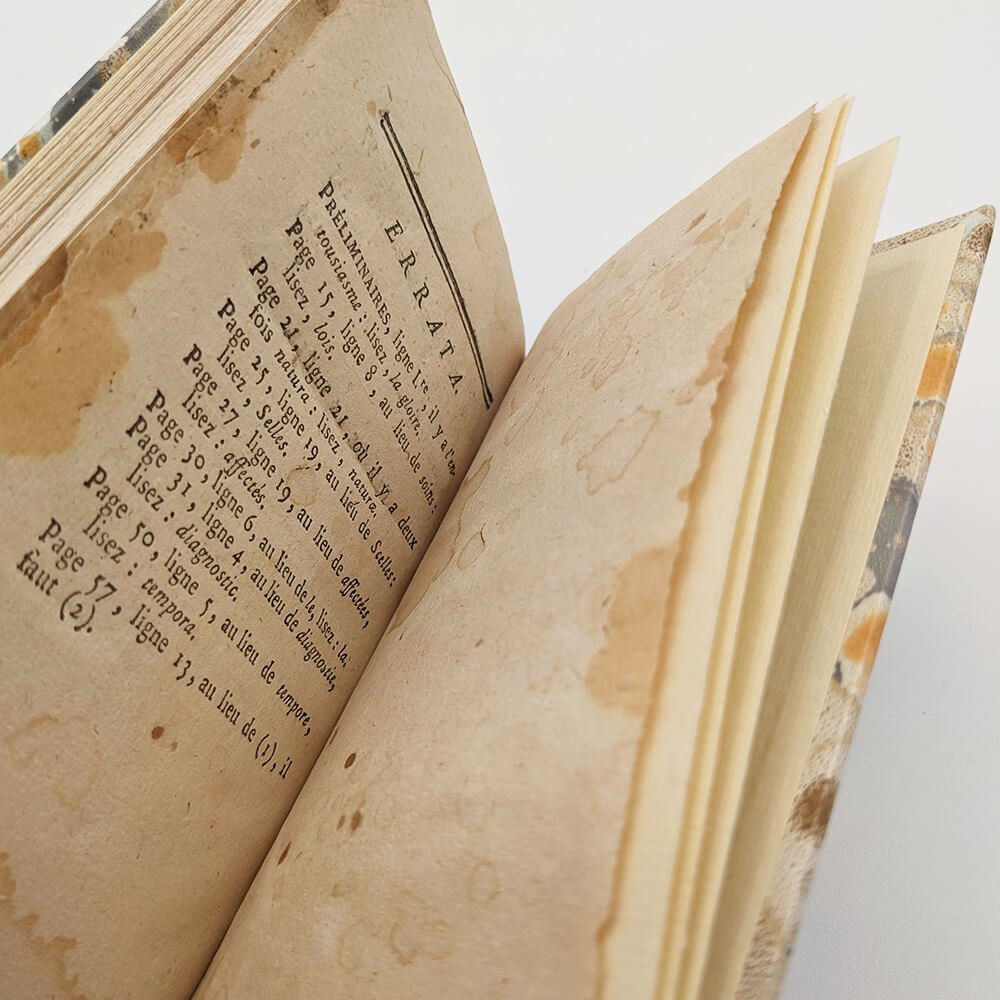 ERRATA.
PRÉLIMINAIRES, ligne 1re, il y a l'en-
tousiasme : lisez, la gloire.
Page 15, ligne 8, au lieu de soins :
lisez, lois.
Page 21, ligne 21, où il y a deux
fois natura : lisez, naturæ.
Page 25, ligne 19, au lieu de Scelles :
lisez, Selles.
Page 27, ligne 19, au lieu de affectées,
lisez : affectés.
Page 30, ligne 6, au lieu de le, lisez : la.
Page 31, ligne 4, au lieu de diagnostic,
lisez : diagnostic.
Page 50, ligne 5, au lieu de tempore,
lisez : tempora.
Page 57, ligne 13, au lieu de (1), il
faut (2).